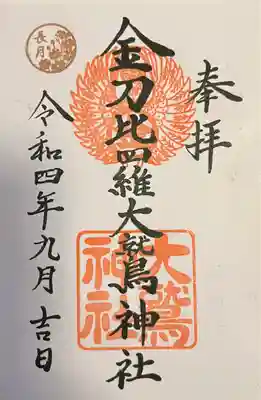 奉拝
金刀比羅大鷲鳥神社
大鷲
神社
令和四年九月吉日
長月